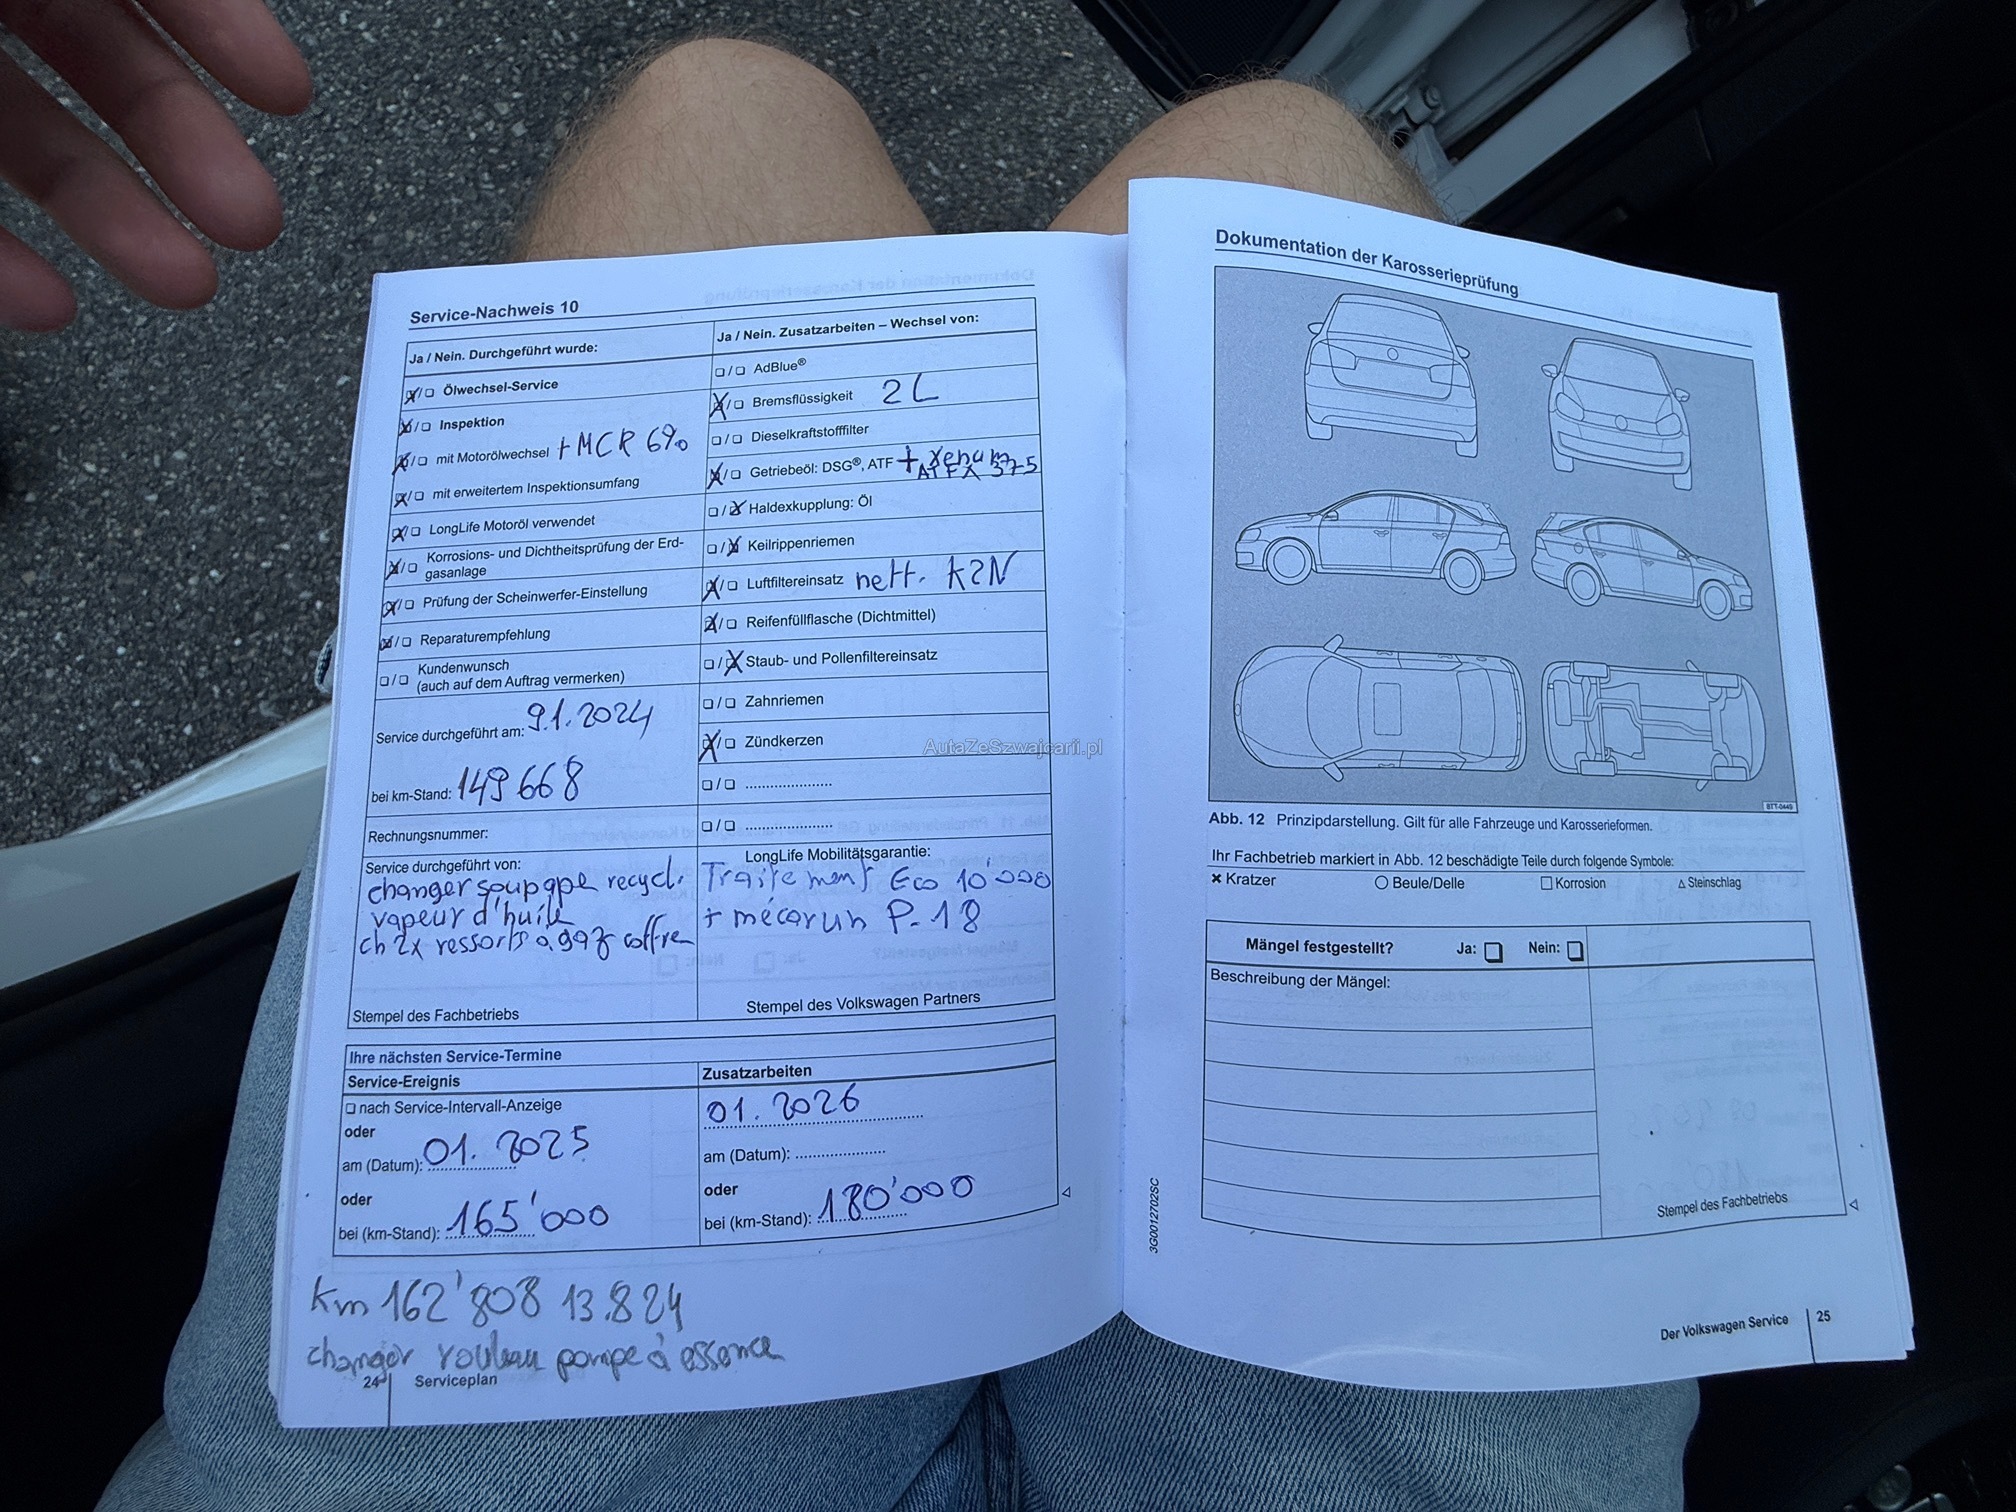 Service-Nachweis 10
Ja / Nein. Durchgeführt wurde:
Ölwechsel-Service
Inspektion
mit Motorölwechsel + MCR 6%
mit erweitertem Inspektionsumfang
LongLife Motoröl verwendet
Korrosions- und Dichtheitsprüfung der Erd-
gasanlage
Prüfung der Scheinwerfer-Einstellung
Reparaturempfehlung
Kundenwunsch
(auch auf dem Auftrag vermerken)
Service durchgeführt am: 9.1.2024
bei km-Stand: 149668
Rechnungsnummer:
Service durchgeführt von:
changer soupape recycl.
vapeur d'huile
ch 2x ressorts a gaz coffre
Stempel des Fachbetriebs
Ja / Nein. Zusatzarbeiten – Wechsel von:
AdBlue®
Bremsflüssigkeit 2L
Dieselkraftstofffilter
Getriebeöl: DSG®, ATF + xenum
ATFX 375
Haldexkupplung: Öl
Keilrippenriemen
Luftfiltereinsatz nett. K2N
Reifenfüllflasche (Dichtmittel)
Staub- und Pollenfiltereinsatz
Zahnriemen
Zündkerzen
LongLife Mobilitätsgarantie:
Traitement Eco 10'000
+ mécarun P-18
Stempel des Volkswagen Partners
Ihre nächsten Service-Termine
Service-Ereignis
nach Service-Intervall-Anzeige
oder
am (Datum): 01. 2025
oder
bei (km-Stand): 165'000
Zusatzarbeiten
01. 2026
am (Datum):
oder
bei (km-Stand): 180'000
km 162'808 13.8.24
changer rouleau pompe à essence
24 Serviceplan
AutaZeSzwajcarii.pl
Dokumentation der Karosserieprüfung
BTT-0449
Abb. 12 Prinzipdarstellung. Gilt für alle Fahrzeuge und Karosserieformen.
Ihr Fachbetrieb markiert in Abb. 12 beschädigte Teile durch folgende Symbole:
Kratzer Beule/Delle Korrosion Steinschlag
Mängel festgestellt? Ja: Nein:
Beschreibung der Mängel:
Stempel des Fachbetriebs
3G0012702SC
Der Volkswagen Service 25